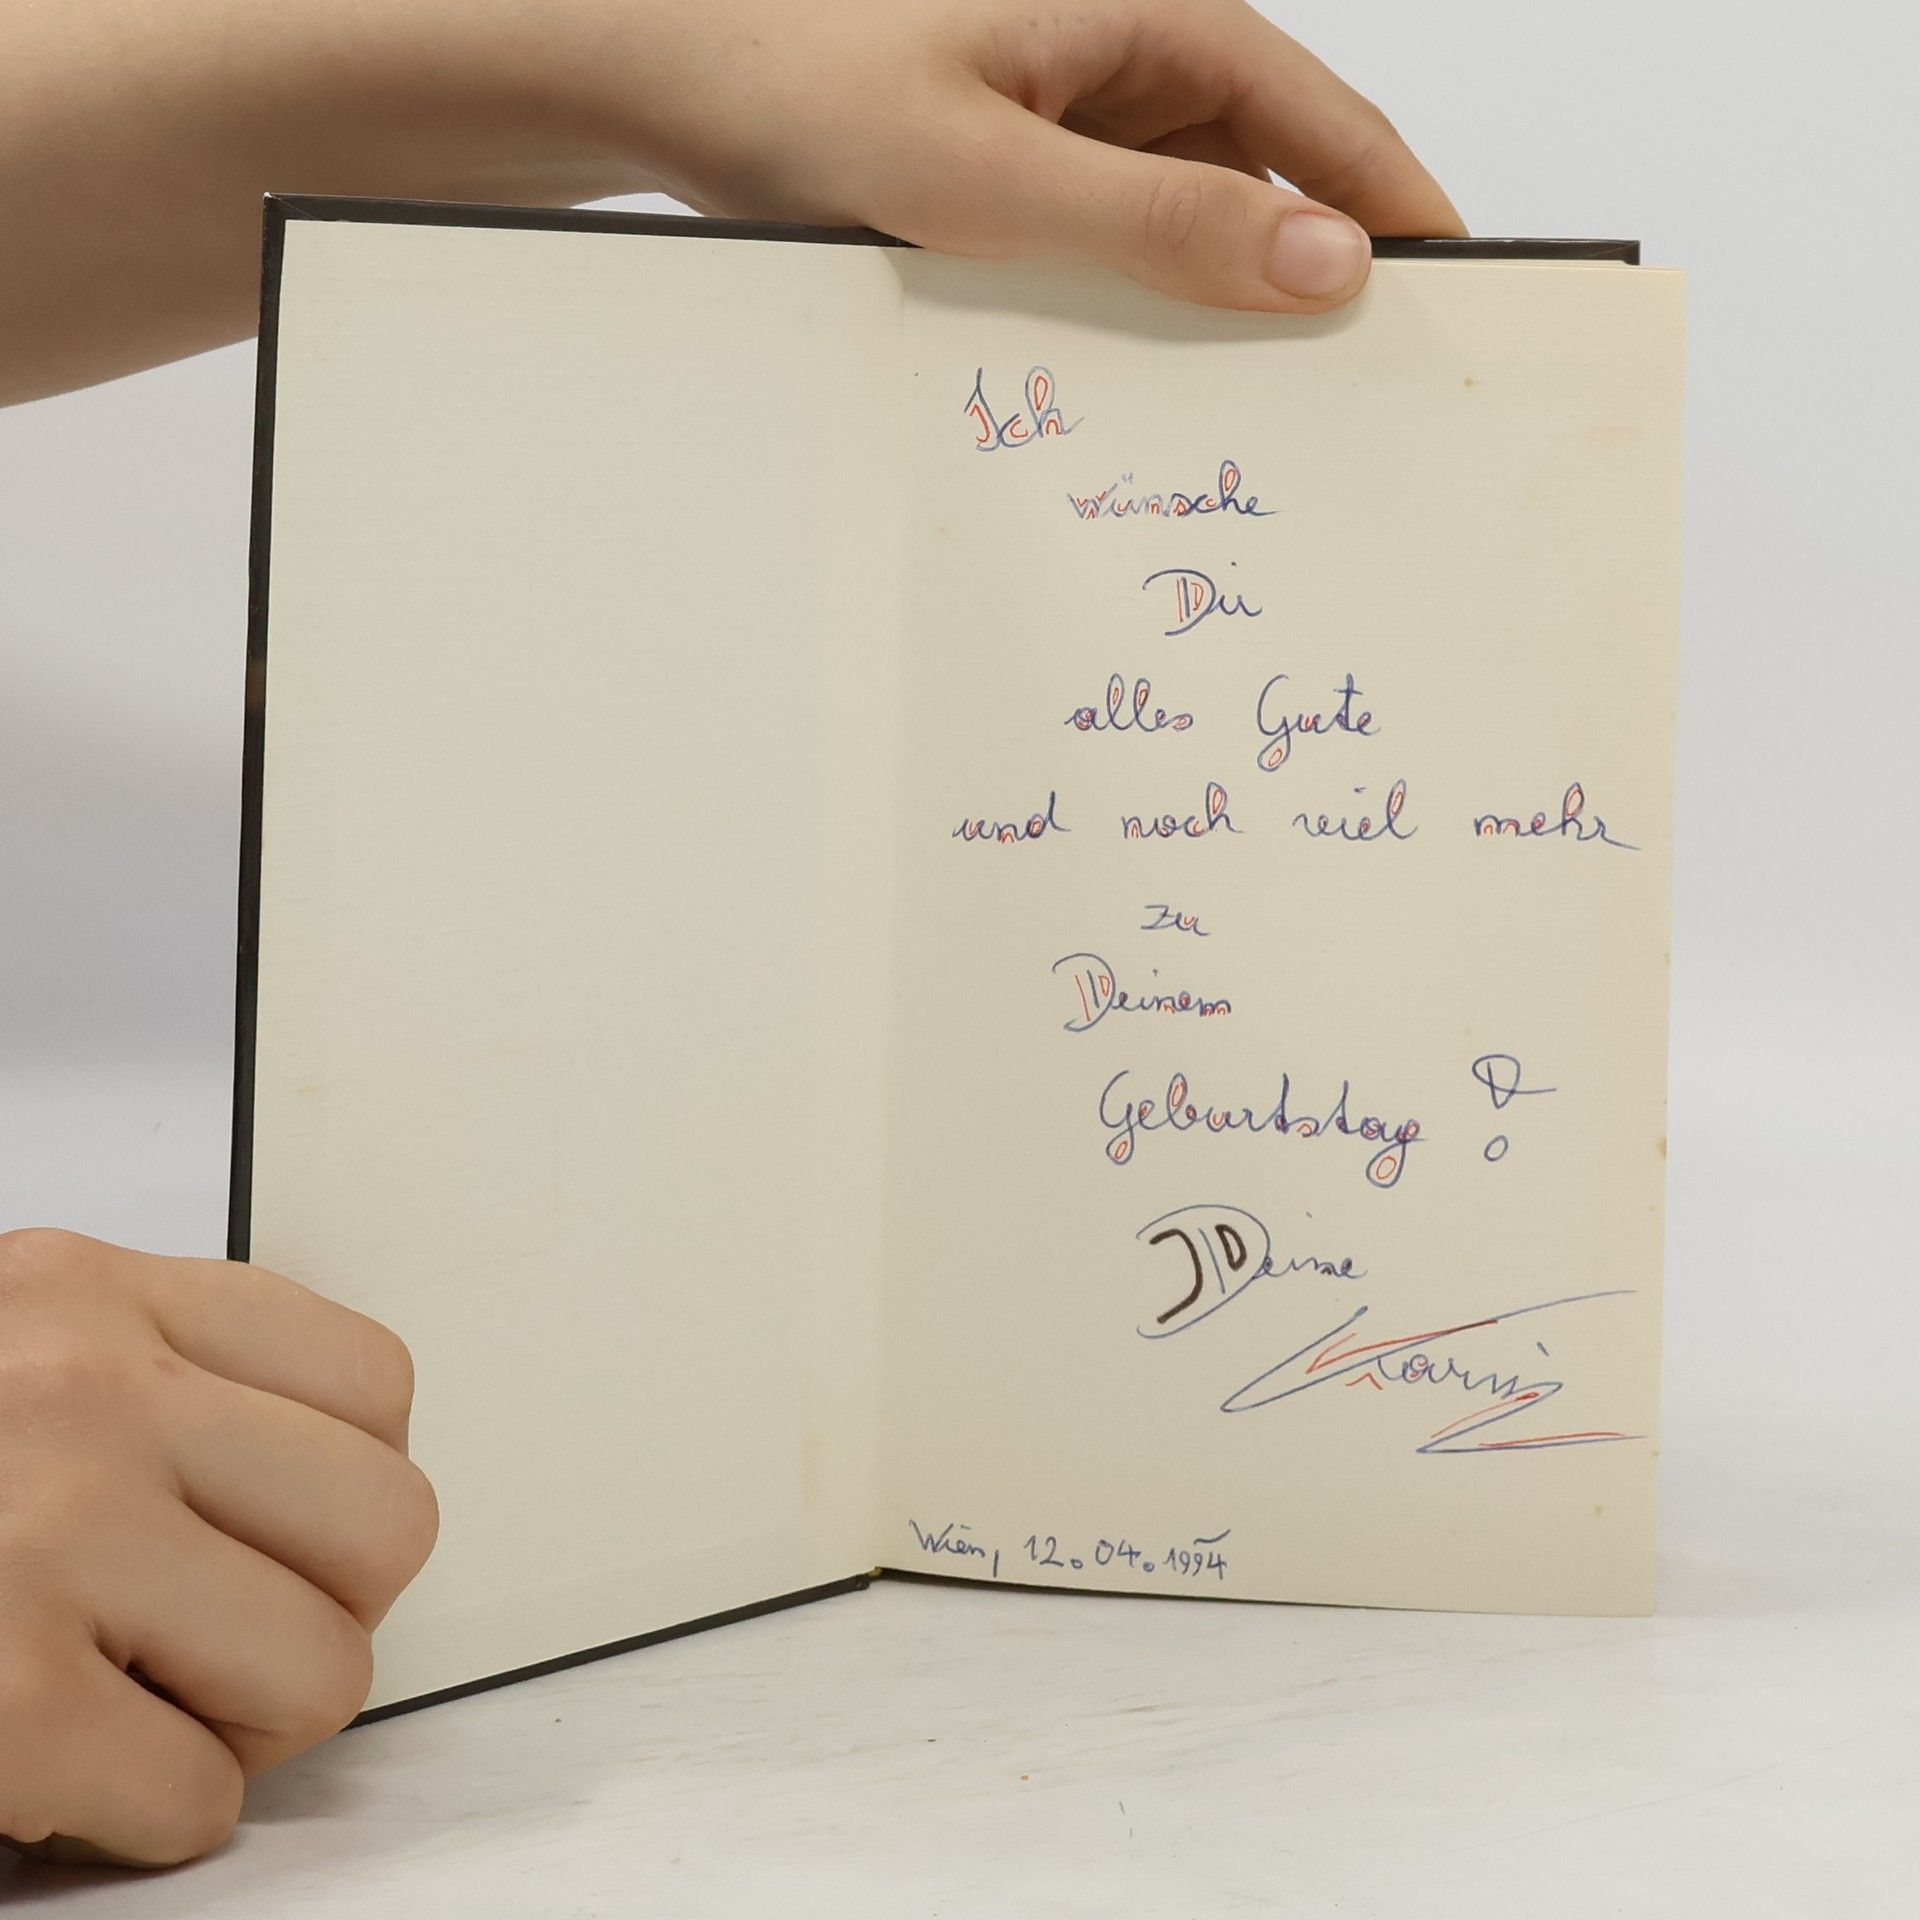 Ich
wünsche
Dir
alles Gute
und noch viel mehr
zu
Deinem
Geburtstag !
Deine
Karin
Wien, 12.04.1994